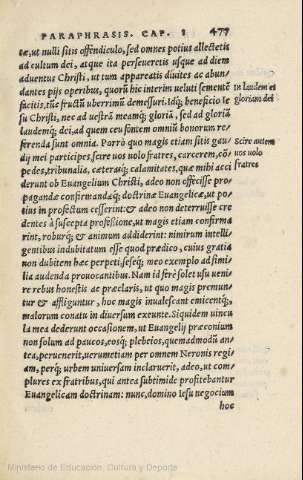 PARAPHRASIS. CAP. I 477
tæ, ut nulli sitis offendiculo, sed omnes potius allectetis
ad cultum dei, atque ita perseueretis usque ad diem
aduentus Christi, ut tum appareatis diuites ac abun
dantes pijs operibus, quorũ hic interim ueluti sementẽ
facitis, tũc fructũ uberrimũ demessuri. Idq́; beneficio Ie
su Christi, nec ad uestrã meamq́; gloriã, sed ad gloriã
laudemq́; dei, ad quem ceu fontem omniũ bonorum re-
ferenda sunt omnia. Porrò quo magis etiam sitis gau
dij mei participes, scire uos uolo fratres, carcerem, cõ
pedes, tribunalia, cæteraq́; calamitates, quæ mihi acci
derunt ob Euangelium Christi, adeo non offecisse pro
pagandæ confirmandæq́; doctrinæ Euangelicæ, ut po
tius in profectum cesserint: & adeo non deterruisse cre
dentes à suscepta professione, ut magis etiam confirma
rint, roburq́; & animum addiderint: nimirum intelli
gentibus indubitatum esse quod prædico, cuius gratia
non dubitem hæc perpeti, seseq́; meo exemplo ad simi-
lia audenda prouocantibus. Nam id ferè solet usu ueni
re rebus honestis ac præclaris, ut quo magis premun-
tur & affliguntur, hoc magis inualescant emicentq́;,
malorum conatu in diuersum exeunte. Siquidem uincu
la mea dederunt occasionem, ut Euangelij præconium
non solum ad paucos, eosq́; plebeios, quemadmodũ an
tea, peruenerit, uerumetiam per omnem Neronis regi
am, perq́; urbem uniuersam inclaruerit, adeo, ut com
plures ex fratribus, qui antea subtimide profitebantur
Euangelicam doctrinam: nunc, domino Iesu negocium
hoc
In laudem et
gloriam dei
Scire autem
uos uolo
fratres
Ministerio de Educación, Cultura y Deporte